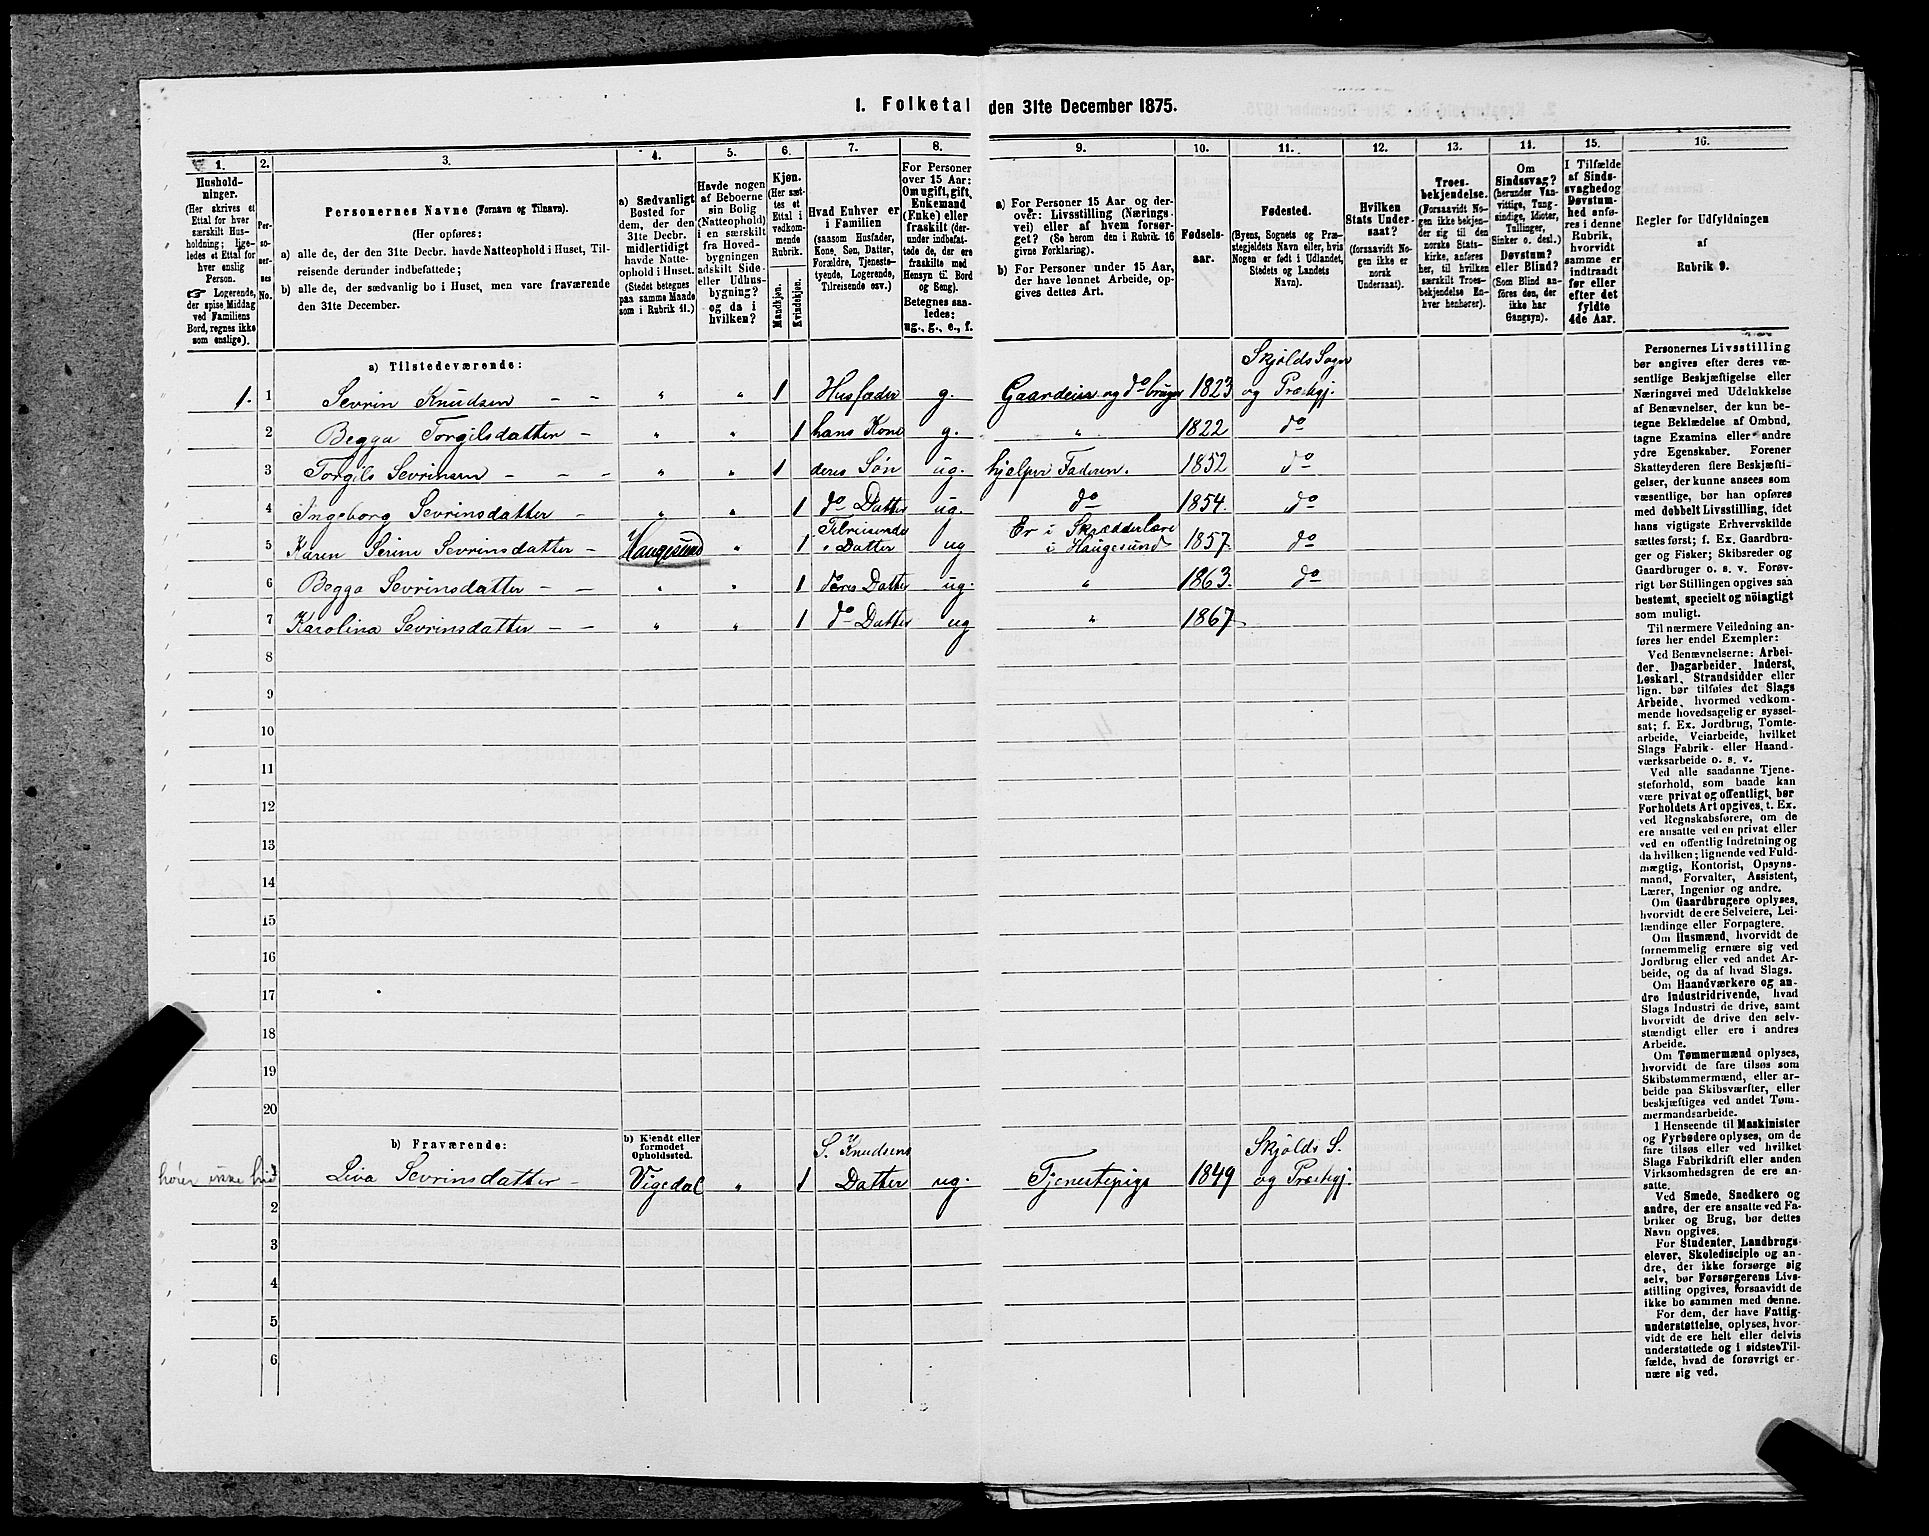 1. Folketal den 31te December 1875.
1. 2. 3. 4. 5. 6. 7. 8. 9. 10. 11. 12. 13. 14. 15. 16.
Hushold-
ninger.
(Her skrives et
Ettal for hver
særskilt Hus-
holdning; lige-
ledes et Ettal for
hver enslig
Person.
☞ Logerende,
der spise Middag
ved Familiens
Bord, regnes ikke
som enslige).
Per-
so-
ner-
nes
No.
Personernes Navne (Fornavn og Tilnavn).
(Her opføres:
a) alle de, der den 31te Decbr. havde Natteophold i Huset, Til-
reisende derunder indbefattede;
b) alle de, der sædvanlig bo i Huset, men vare fraværende
den 31te December.
a) Sædvanligt
Bosted for
dem, der den
31te Decbr.
midlertidigt
havde Natte-
ophold i Huset.
(Stedet betegnes
paa samme Maade
som i Rubrik 11.)
Havde nogen
af Beboerne
sin Bolig
(Natteophold)
i en særskilt
fra Hoved-
bygningen
adskilt Side-
eller Udhus-
bygning?
og da i
hvilken?
Kjøn.
(Her sæt-
tes et
Ettal i
vedkom-
mende
Rubrik.
Mandkjøn.
Kvindekjøn.
Hvad Enhver er
i Familien
(saasom Husfader,
Kone, Søn, Datter,
Forældre, Tjeneste-
tyende, Logerende,
Tilreisende osv.)
For Personer
over 15 Aar:
Om ugift, gift,
Enkemand
(Enke) eller
fraskilt (der-
under indbefat-
tede de, der ere
fraskilte med
Hensyn til Bord
og Seng).
Betegnes saa-
ledes:
ug., g., e., f.
a) For Personer 15 Aar og der-
over: Livsstilling (Nærings-
vei) eller af hvem forsør-
get? (Se herom den i Rubrik 16
givne Forklaring).
b) For Personer under 15 Aar,
der have lønnet Arbeide, op-
gives dettes Art.
Fødsels-
aar.
Fødested.
(Byens, Sognets og Præ-
stegjeldets Navn eller, hvis
Nogen er født i Udlandet,
Stedets og Landets
Navn).
Hvilken
Stats Under-
saat?
(forsaavidt No-
gen ikke er
norsk
Undersaat).
Troes-
bekjendelse.
(Forsaavidt No-
gen ikke bekjen-
der sig til den
norske Stats-
kirke, anføres
her, til hvilken
særskilt Troes-
bekjendelse En-
hver henhører).
Om
Sindssvag?
(herunder Van-
vittige, Tung-
sindige, Idioter,
Tullinger,
Sinker o. desl.)
Døvstum?
eller Blind?
(Som Blind an-
føres den, der
ikke har
Gangsyn).
I Tilfælde
af Sinds-
svaghed og
Døvstum-
hed anfø-
res i denne
Rubrik,
hvorvidt
samme er
indtraadt
før eller
efter det
fyldte
4de Aar.
Regler for Udfyldningen
af
Rubrik 9.
a) Tilstedeværende:
Skjolds Sogn
1. 1 Sevrin Knudsen - - " " 1 Husfader g. Gaardeier og do bruger 1823 og Præstegj.
2 Begga Torgilsdatter - " " 1 hans Kone g. " 1822 do
3 Torgils Sevrinsen - - - " " 1 deres Søn ug. hjelper Faderen. 1852 do
4 Ingeborg Sevrinsdatter - " " 1 do Datter ug. do 1854. do
Tilreisende Er i Skrædderlære
5 Karen Serine Sevrinsdatter - Haugesund " 1 " Datter ug i Haugesund 1857. do
6 Begga Sevrinsdatter - - " " 1 deres Datter ug. " 1863. do
7 Karolina Sevrinsdatter - - " " 1 do Datter ug " 1867.
8
9
10
11
12
13
14
15
16
17
18
19
20
b) Fraværende:
b) Kjendt eller
formodet
Opholdssted.
S. Knudsens Skjolds S.
hører ikke hid 1 Liva Sevrinsdatter - Vigedal " 1 Datter ug. Tjenestepige 1849 og Præstegj.
2
3
4
5
6
Personernes Livsstilling
bør angives efter deres væ-
sentlige Beskjæftigelse eller
Næringsvei med Udelukkelse
af Benævnelser, der kun be-
tegne Beklædelse af Ombud,
tagne Examina eller andre
ydre Egenskaber. Forener
Skatteyderen flere Beskjæfti-
gelser, der kunne ansees som
væsentlige, bør han opføres
med dobbelt Livsstilling, idet
hans vigtigste Erhvervskilde
sættes først; f. Ex. Gaardbru-
ger og Fisker; Skibsreder og
Gaardbruger o. s. v. Forøv-
rigt bør Stillingen opgives saa
bestemt, specielt og nöiagtigt
som muligt.
Til nærmere Veiledning an-
føres her endel Exempler:
Ved Benævnelserne: Arbei-
der, Dagarbeider, Inderst,
Løskarl, Strandsidder eller
lign. bør tilføies det Slags
Arbeide, hvormed vedkom-
mende hovedsagelig er syssel-
sat; f. Ex. Jordbrug, Tomte-
arbeide, Veiarbeide, hvilket
Slags Fabrik- eller Haand-
værksarbeide o. s. v.
Ved alle saadanne Tjene-
steforhold, som baade kan
være privat og offentligt, bør
Forholdets Art opgives, t. Ex.
ved Regnskabsførere, om de
ere ansatte ved en privat eller
ved en offentlig Indretning og
da hvilken; lignende ved Fuld-
mægtig, Kontorist, Opsyns-
mand, Forvalter, Assistent,
Lærer, Ingeniør og andre.
Om Gaardbrugere oplyses,
hvorvidt de ere Selveiere, Lei-
lændinge eller Forpagtere.
Om Husmænd, hvorvidt de
fornemmelig ernære sig ved
Jordbrug eller ved andet Ar-
beide, og da af hvad Slags.
Om Haandværkere og an-
dre Industridrivende, hvad
Slags Industri de drive, samt
hvorvidt de drive den selv-
stændigt eller ere i andres
Arbeide.
Om Tømmermænd oplyses,
hvorvidt de fare tilsøs som
Skibstømmermænd, eller ar-
beide paa Skibsværfter, eller
beskjæftiges ved andet Tøm-
mermandsarbeide.
I Henseende til Maskinister
og Fyrbødere oplyses, om de
fare tilsøs eller ved hvilket
Slags Fabrikdrift eller anden
Virksomhedsgren de ere an-
satte.
Ved Smede, Snedkere og
andre, der ere ansatte ved Fa-
briker og Brug, bør dettes
Navn opgives.
For Studenter, Landbrugs-
elever, Skoledisciple og an-
dre, der ikke forsørge sig
selv, bør Forsørgerens Livs-
stilling opgives, forsaavidt de
ikke bo sammen med denne.
For dem, der have Fattig-
understøttelse, oplyses, hvor-
vidt de ere helt eller delvis
understøttede og i sidste Til-
fælde, hvad de forøvrigt er-
nære sig ved.